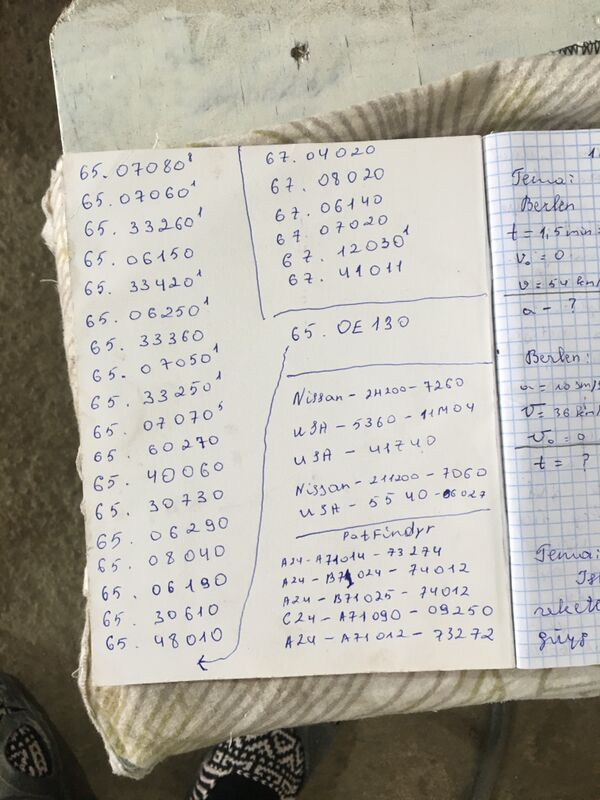 65. 07080¹
65. 07060¹
65. 33260¹
65. 06150
65. 33420¹
65. 06250¹
65. 33360
65. 07050¹
65. 33250¹
65. 07070⁵
65. 60270
65. 40060
65. 30730
65. 06290
65. 08040
65. 06190
65. 30610
65. 48010
67. 04020
67. 08020
67. 06140
67. 07020
67. 12030¹
67. 41011
65. OE 130
Nissan - 24200 - 7260
USA - 5360 - 11M04
USA - 41740
Nissan - 211200 - 7060
USA - 5540 - 06027
PatFindyr
A24 - A71014 - 73274
A24 - B71024 - 74012
A24 - B71025 - 74012
C24 - A71090 - 09250
A24 - A71012 - 73272
1
Tema:
Berlen
t = 1,5 min =
v₀ = 0
v = 54 km/
a - ?
Berlen:
a = 10 sm/s
v = 36 km/
v₀ = 0
t = ?
Tema:
reket
güýs